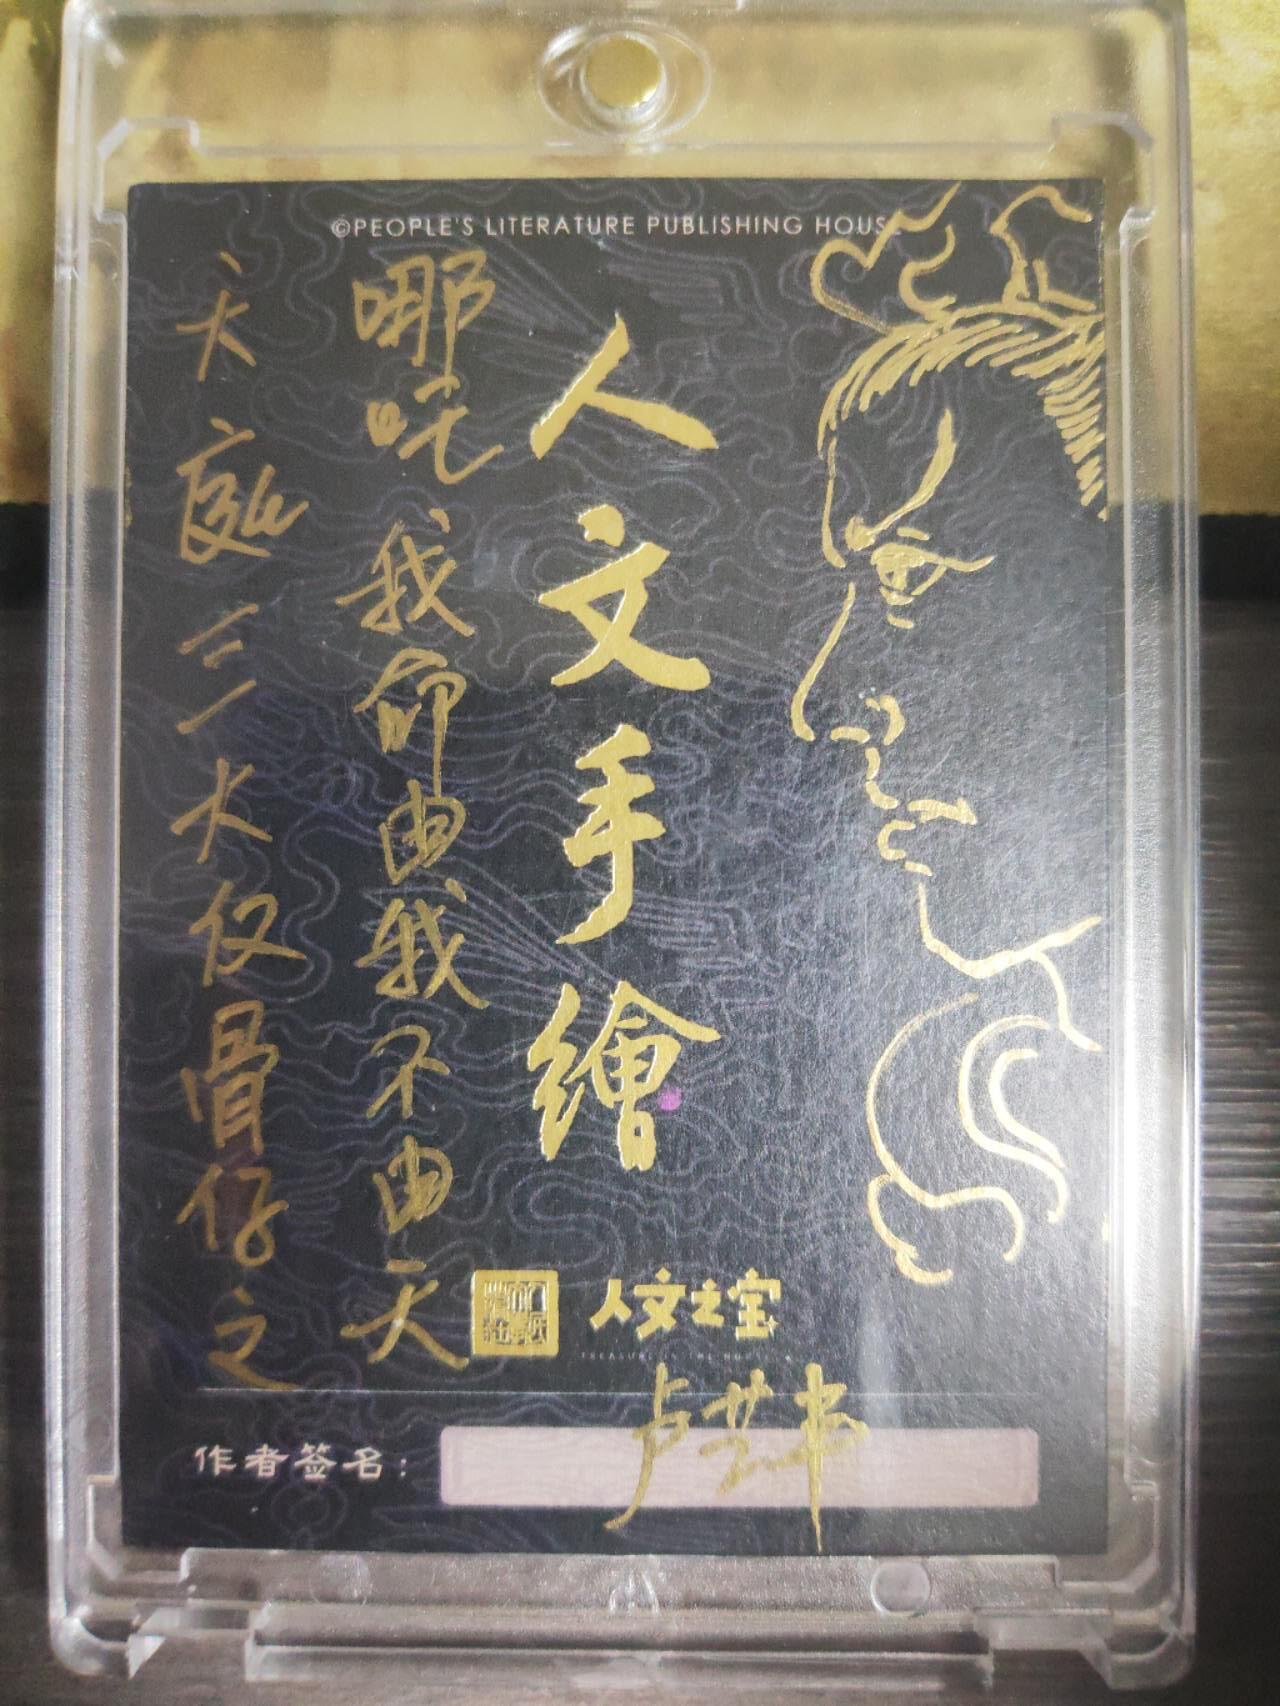 ©PEOPLE'S LITERATURE PUBLISHING HOUS
人文手繪
哪吒我命由我不由天
天庭三大仅骨仔之一
人文之宝
作者签名：